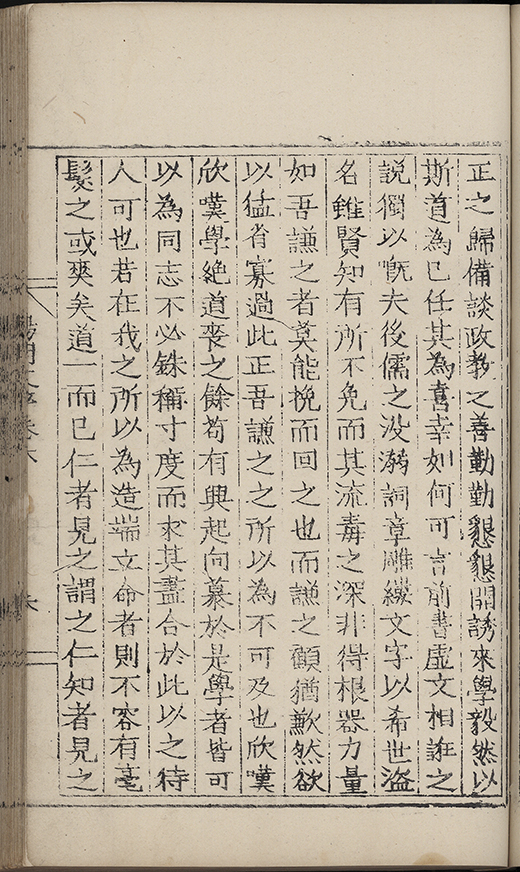 正之歸備談政教之善勤勤懇懇開誘來學毅然以
斯道為己任其為喜幸如何可言前書虛文相誑之
說獨以慨夫後儒之没溺詞章雕縷文字以希世盜
名雖賢知有所不免而其流毒之深非得根器力量
如吾謙之者莫能挽而回之也而謙之顧猶歉然欲
以猛省寡過此正吾謙之之所以為不可及也欣嘆
欣嘆學絶道喪之餘苟有興起向慕於是學者皆可
以為同志不必銖稱寸度而求其盡合於此以之待
人可也若在我之所以為造端立命者則不容有毫
髮之或爽矣道一而已仁者見之謂之仁知者見之